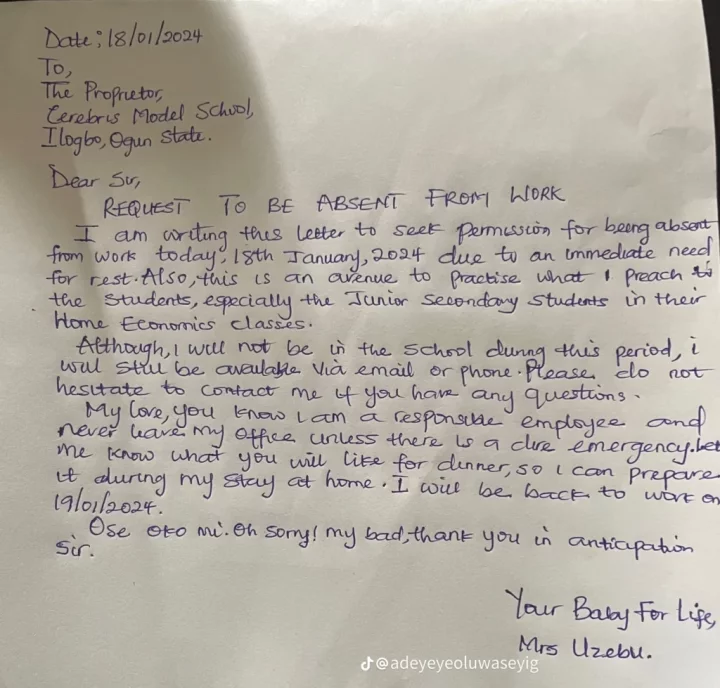 Date; 18/01/2024
To,
The Proprietor,
Cerebris Model School,
Ilogbo, Ogun State.
Dear Sir,
REQUEST TO BE ABSENT FROM WORK
I am writing this letter to seek permission for being absent
from work today; 18th January, 2024 due to an immediate need
for rest. Also, this is an avenue to practise what I preach to
the students, especially the Junior Secondary Students in their
Home Economics classes.
Although, I will not be in the school during this period, i
will still be available via email or phone. Please do not
hesitate to contact me if you have any questions.
My love, you know I am a responsible employee and
never leave my office unless there is a dire emergency. Let
me know what you will like for dinner, so I can prepare
it during my stay at home. I will be back to work on
19/01/2024.
Ose oko mi. Oh sorry! my bad, thank you in anticipation
Sir.
Your Baby For Life,
Mrs Uzebu.
@adeyeyeoluwaseyig